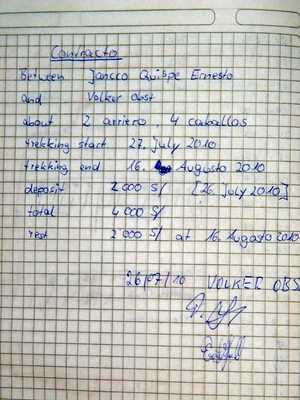 Contracto
Between Jancco Quispe Ernesto
and Volker Obst
about 2 arriero, 4 caballos
trekking start 27. July 2010
trekking end 16. Augusto 2010
deposit 2 000 S/ [26. July 2010]
total 4 000 S/
rest 2 000 S/ at 16. Augusto 2010
26/07/10 VOLKER OBS